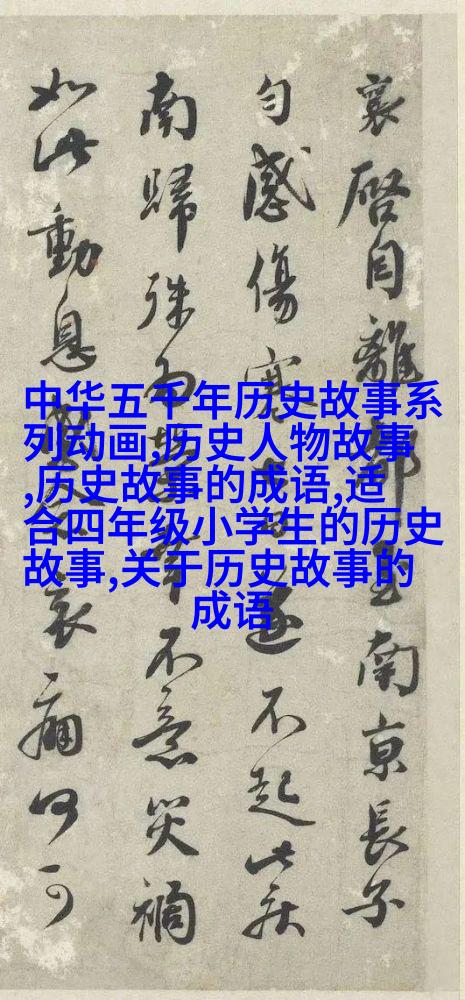 中华五千年历史故事系
列动画,历史人物故事
,历史故事的成语,适
合四年级小学生的历史
故事,关于历史故事的
成语
襄啓自離都至南京長子
匀感傷寒遂不起此疾
南歸殊為榮幸不意災禍
如此動息感念哀痛何可